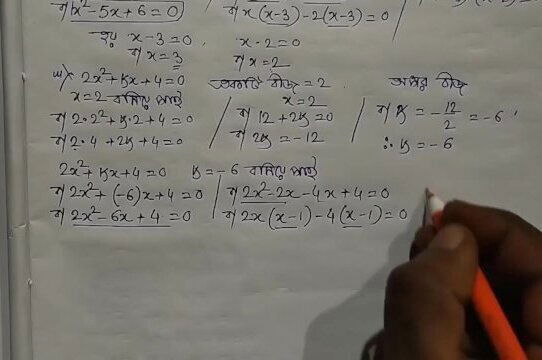 বা x²-5x+6=0
বা x(x-3)-2(x-3)=0
হয় x-3=0
বা x=3
x-2=0
বা x=2
2x²+kx+4=0
একটি বীজ=2
অপর বীজ
x=2 বসিয়ে পাই
x=2
বা 2·2²+k·2+4=0
বা 12+2k=0
বা k=-12/2=-6
বা 2·4+2k+4=0
বা 2k=-12
∴ k=-6
2x²+kx+4=0 k=-6 বসিয়ে পাই
বা 2x²+(-6)x+4=0
বা 2x²-2x-4x+4=0
বা 2x²-6x+4=0
বা 2x(x-1)-4(x-1)=0